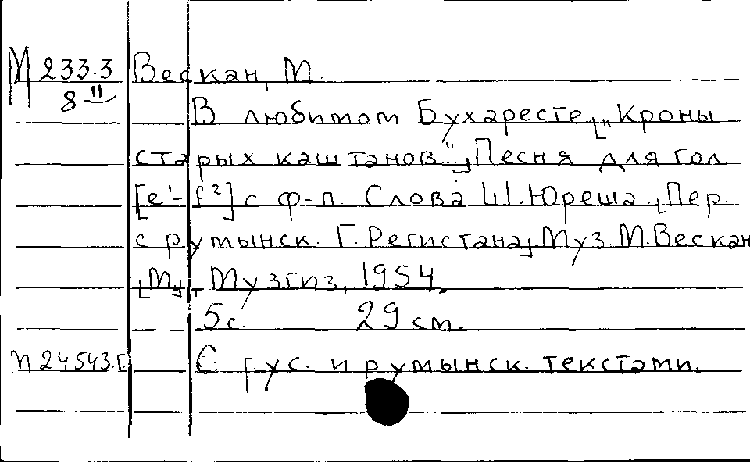 М 233.3 Вескан, М.
8-II В любимом Бухаресте. [„Кроны
старых каштанов“.] Песня для гол.
[e¹-f²] с ф-п. Слова Ш. Юреша. [Пер.
с румынск. Г. Регистана.] Муз. М. Вескан
[М.], Музгиз, 1954.
5 с. 29 см.
П 24543.Г С рус. и румынск. текстами.